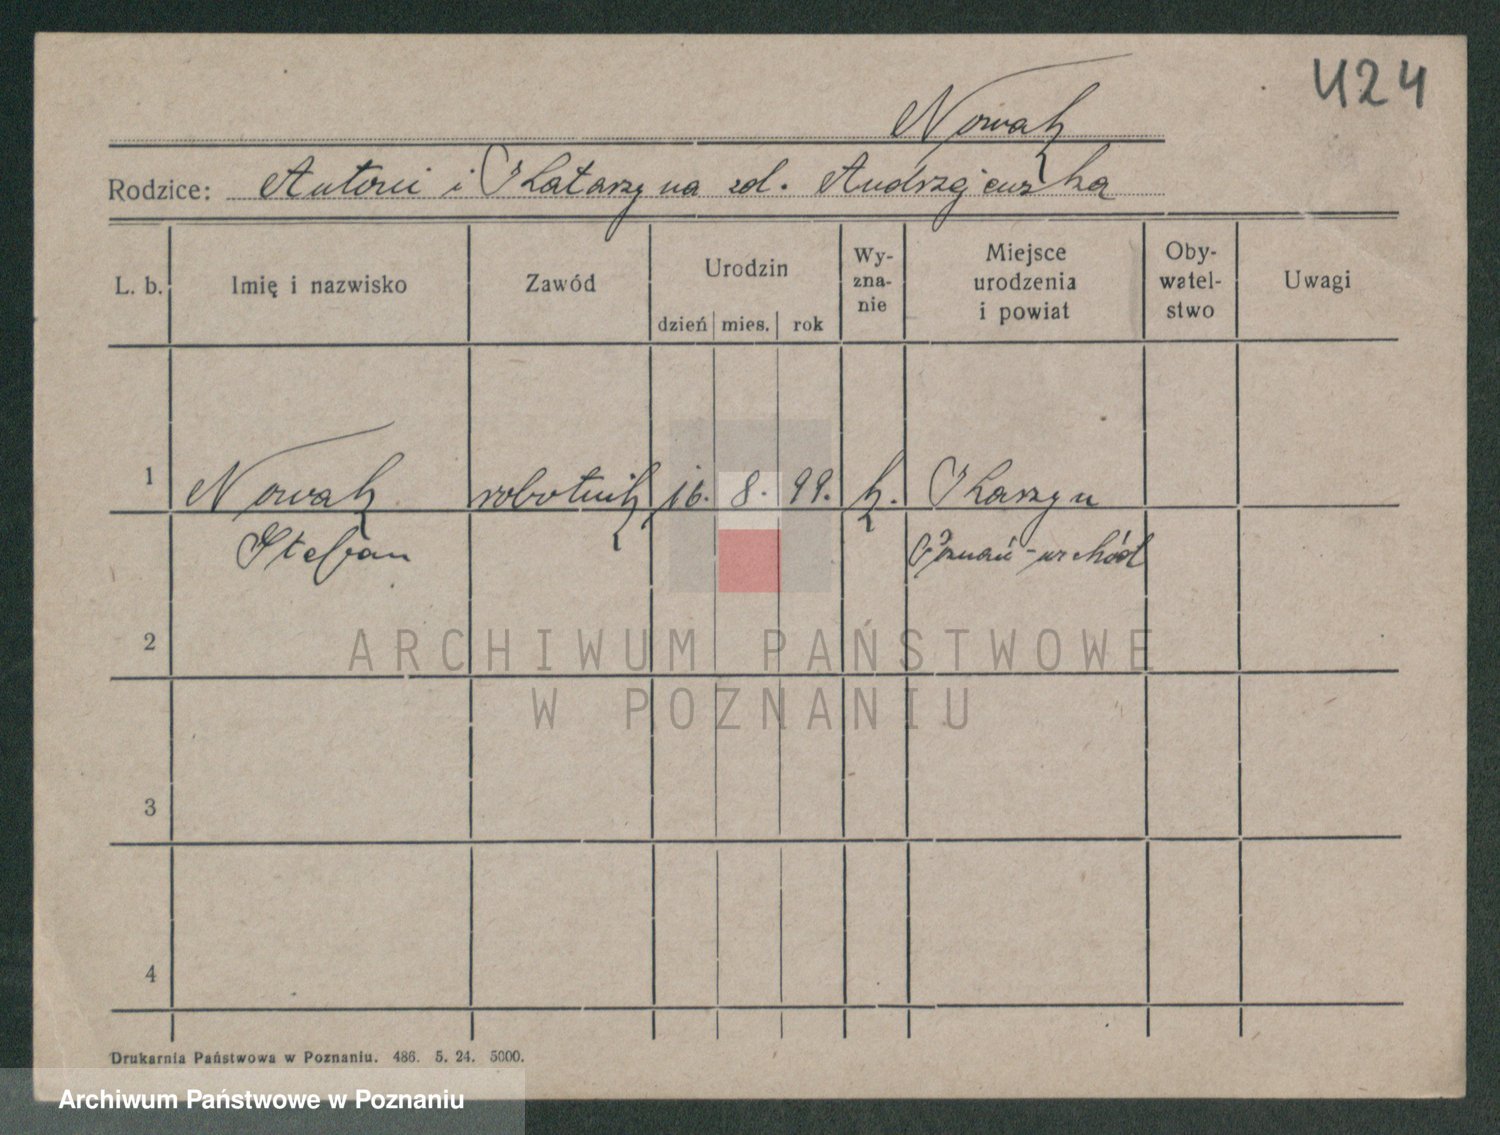 424
Nowak
Rodzice: Antoni i Katarzyna zd. Andrzejewska
L. b. Imię i nazwisko Zawód Urodzin dzień mies. rok Wy-zna-nie Miejsce urodzenia i powiat Oby-watel-stwo Uwagi
1 Nowak robotnik 16. 8. 99. k. Karzyn
Stefan Poznań-wschód
2
ARCHIWUM PAŃSTWOWE
W POZNANIU
3
4
Drukarnia Państwowa w Poznaniu. 486. 5. 24. 5000.
Archiwum Państwowe w Poznaniu